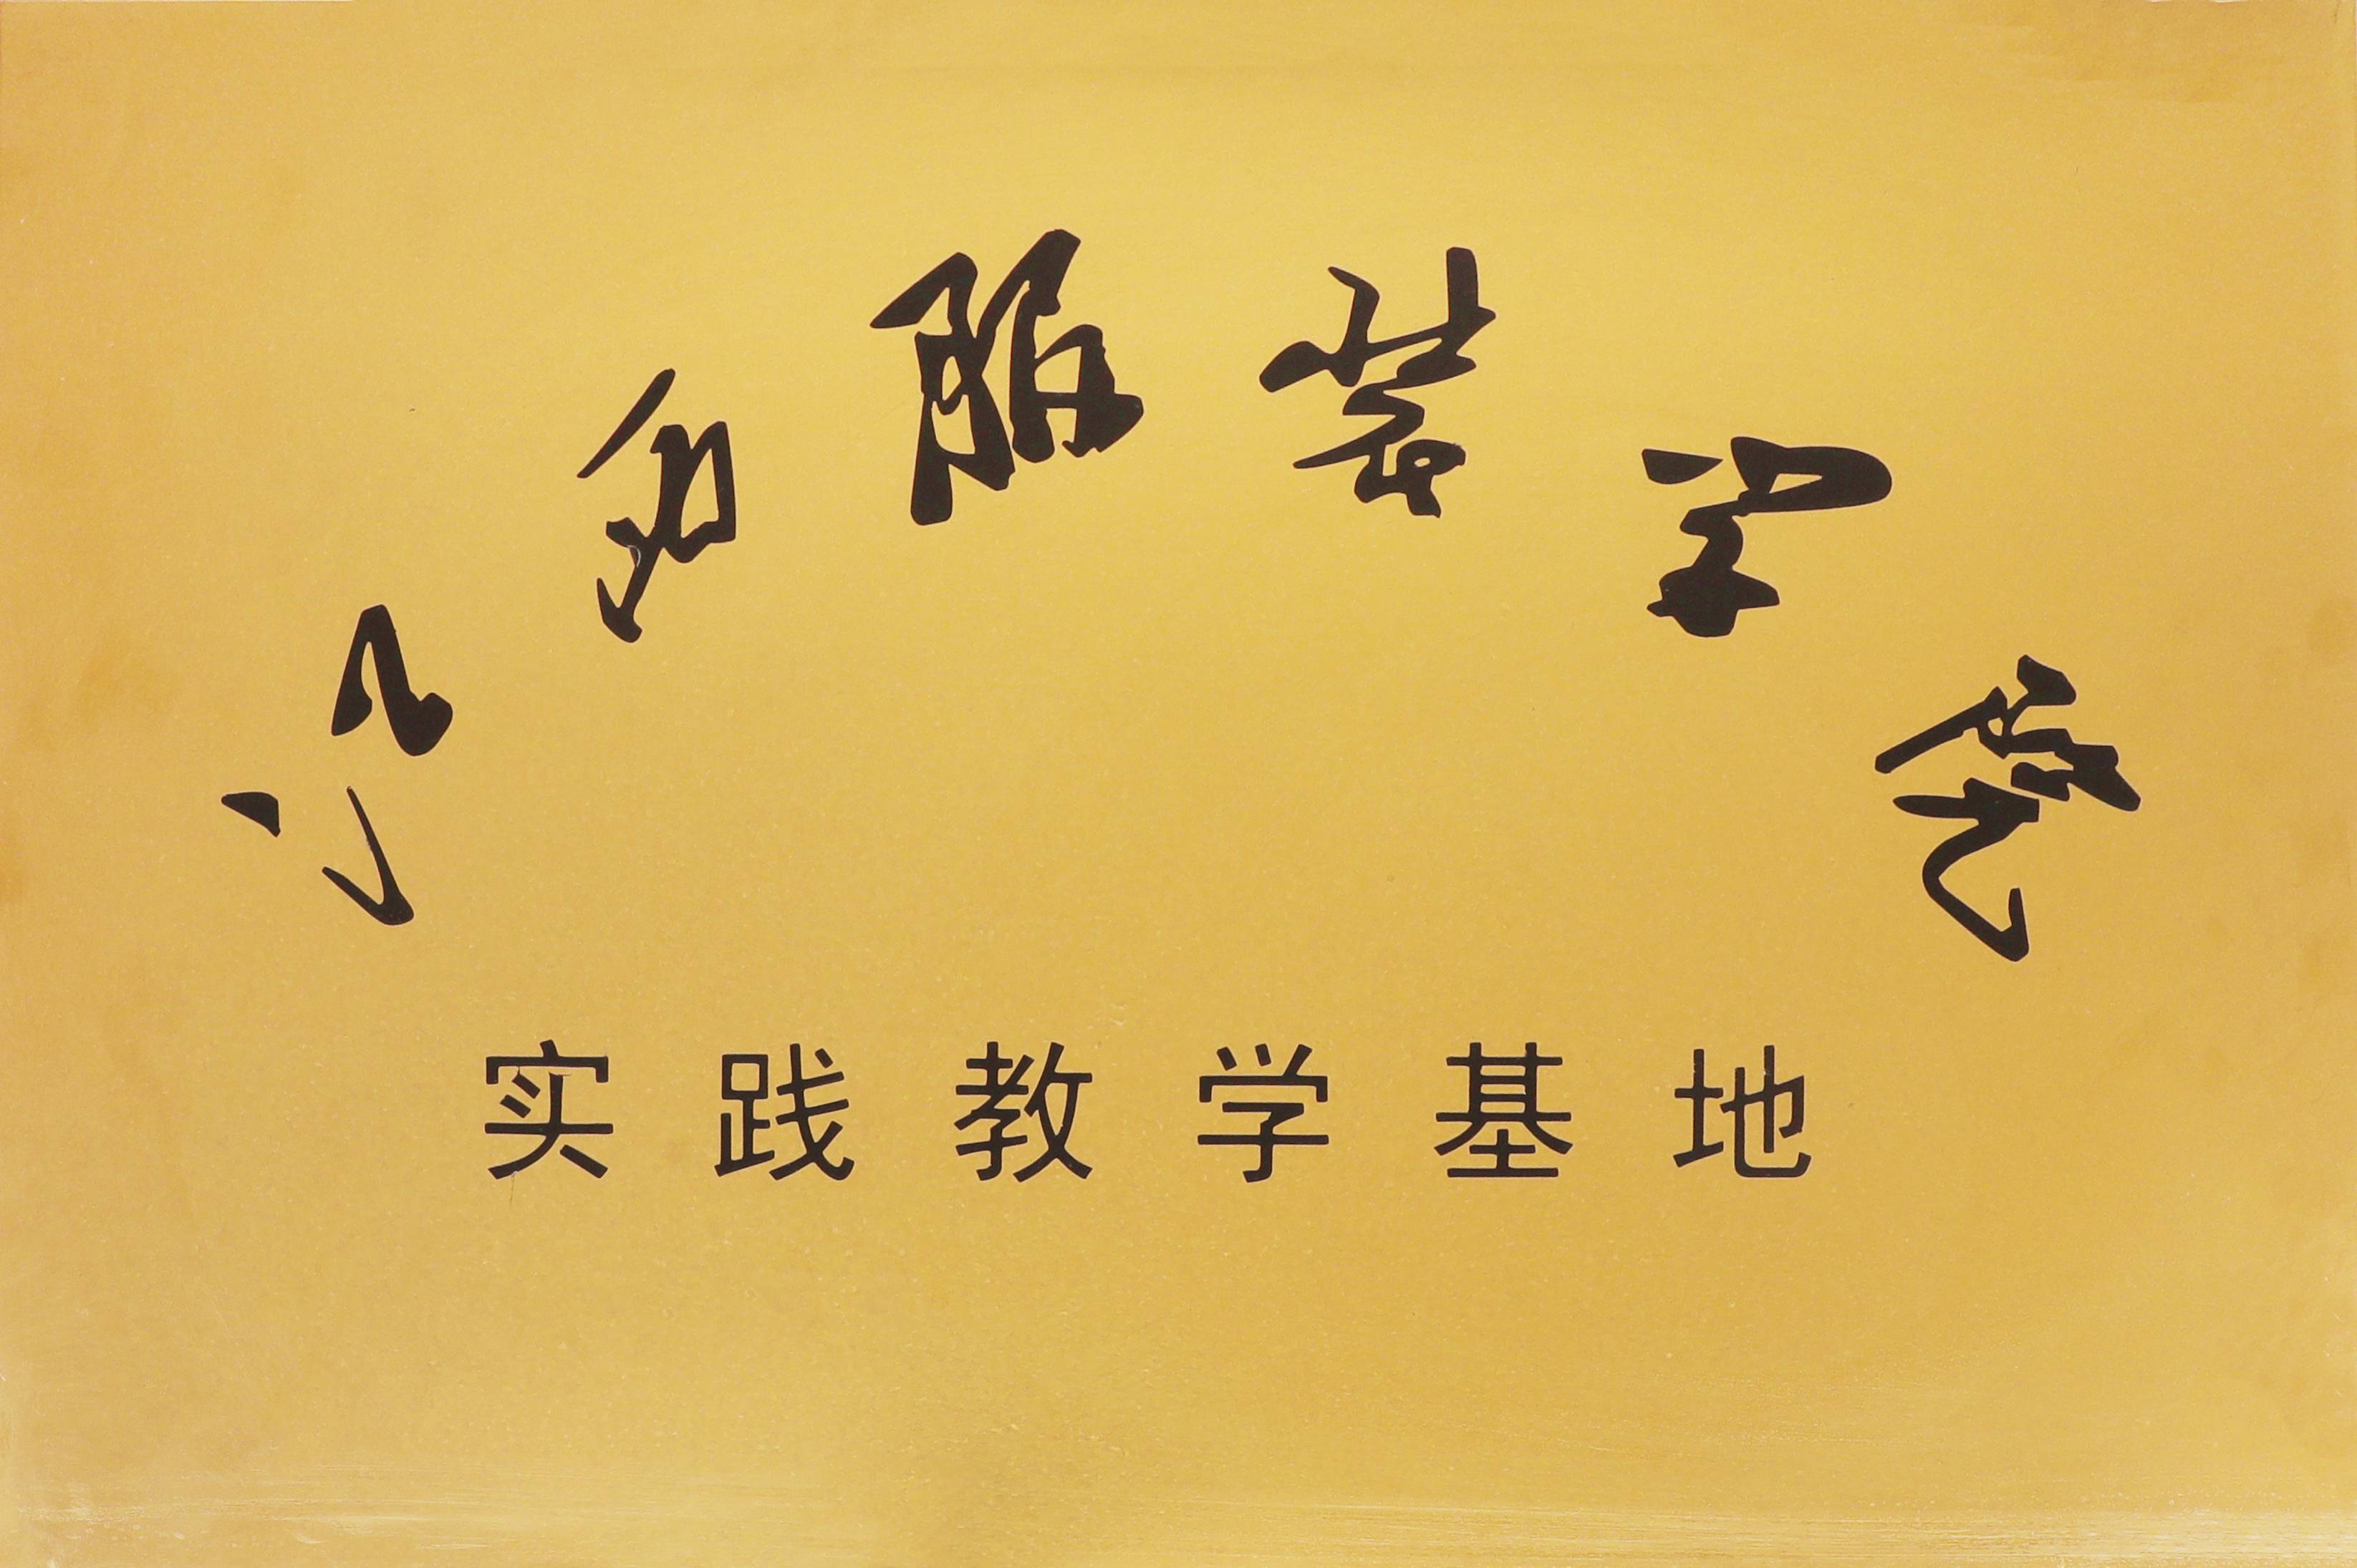 江西服装学院
实践教学基地